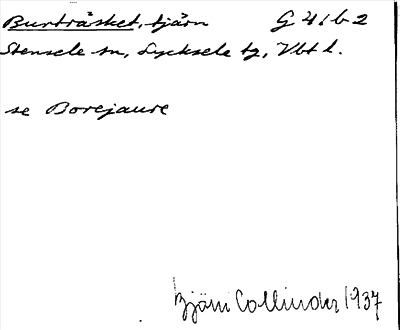 Burträsket, tjärn G 41 b 2
Stensele sn, Lycksele tg, Vbt l.
se Borejaure
Björn Collinder 1937